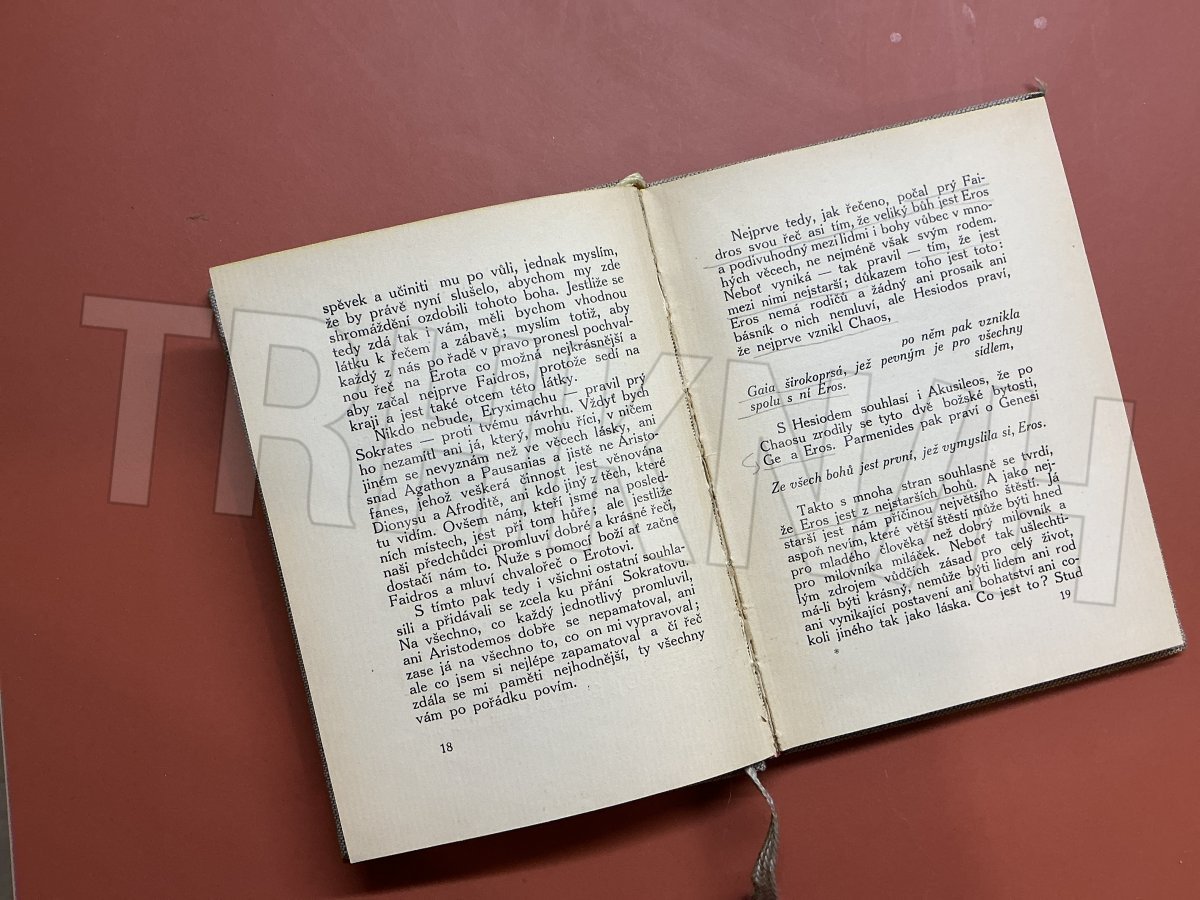 spěvek a učiniti mu po vůli, jednak myslím,
že by právě nyní slušelo, abychom my zde
shromáždění ozdobili tohoto boha. Jestliže se
tedy zdá tak i vám, měli bychom vhodnou
látku k řečem a zábavě; myslím totiž, aby
každý z nás po řadě v pravo pronesl pochval-
nou řeč na Erota co možná nejkrásnější a
aby začal nejprve Faidros, protože sedí na
kraji a jest také otcem této látky.
Nikdo nebude, Eryximachu — pravil prý
Sokrates — proti tvému návrhu. Vždyť bych
ho nezamítl ani já, který, mohu říci, v ničem
jiném se nevyznám než ve věcech lásky, ani
snad Agathon a Pausanias a jistě ne Aristo-
fanes, jehož veškerá činnost jest věnována
Dionysu a Afroditě, ani kdo jiný z těch, které
tu vidím. Ovšem nám, kteří jsme na posled-
ních místech, jest při tom hůře; ale jestliže
naši předchůdci promluví dobré a krásné řeči,
dostačí nám to. Nuže s pomocí boží ať začne
Faidros a mluví chvalořeč o Erotovi.
S tímto pak tedy i všichni ostatní souhla-
sili a přidávali se zcela ku přání Sokratovu.
Na všechno, co každý jednotlivý promluvil,
ani Aristodemos dobře se nepamatoval, ani
zase já na všechno to, co on mi vypravoval;
ale co jsem si nejlépe zapamatoval a čí řeč
zdála se mi paměti nejhodnější, ty všechny
vám po pořádku povím.
18
Nejprve tedy, jak řečeno, počal prý Fai-
dros svou řeč asi tím, že veliký bůh jest Eros
a podivuhodný mezi lidmi i bohy vůbec v mno-
hých věcech, ne nejméně však svým rodem.
Neboť vyniká — tak pravil — tím, že jest
mezi nimi nejstarší; důkazem toho jest toto:
Eros nemá rodičů a žádný ani prosaik ani
básník o nich nemluví, ale Hesiodos praví,
že nejprve vznikl Chaos,
po něm pak vznikla
Gaia širokoprsá, jež pevným je pro všechny
sídlem,
spolu s ní Eros.
S Hesiodem souhlasí i Akusileos, že po
Chaosu zrodily se tyto dvě božské bytosti,
Ge a Eros. Parmenides pak praví o Genesi
Ze všech bohů jest první, jež vymyslila si, Eros.
Takto s mnoha stran souhlasně se tvrdí,
že Eros jest z nejstarších bohů. A jako nej-
starší jest nám příčinou největšího štěstí. Já
aspoň nevím, které větší štěstí může býti hned
pro mladého člověka než dobrý milovník a
pro milovníka miláček. Neboť tak ušlechti-
lým zdrojem vůdčích zásad pro celý život,
má-li býti krásný, nemůže býti lidem ani rod
ani vynikající postavení ani bohatství ani co-
koli jiného tak jako láska. Co jest to? Stud
19
*
TRHKNIH